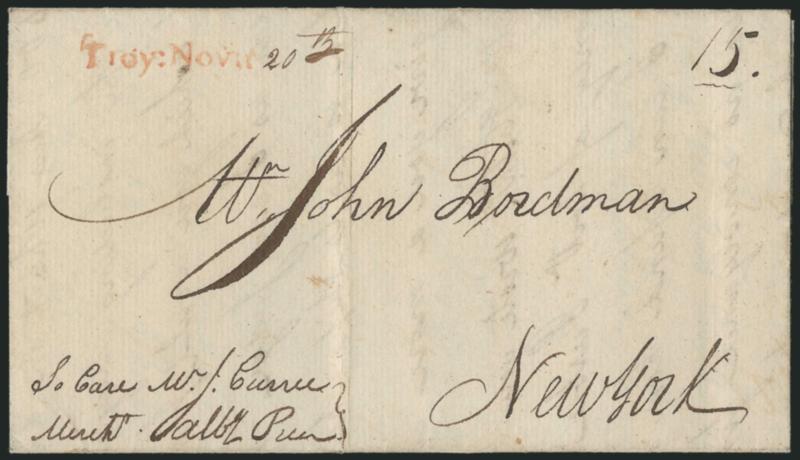 Troy: Nov.r 20th
15.
Mr. John Bordman
New York
To Care Mr. J. Currie
Mercht.